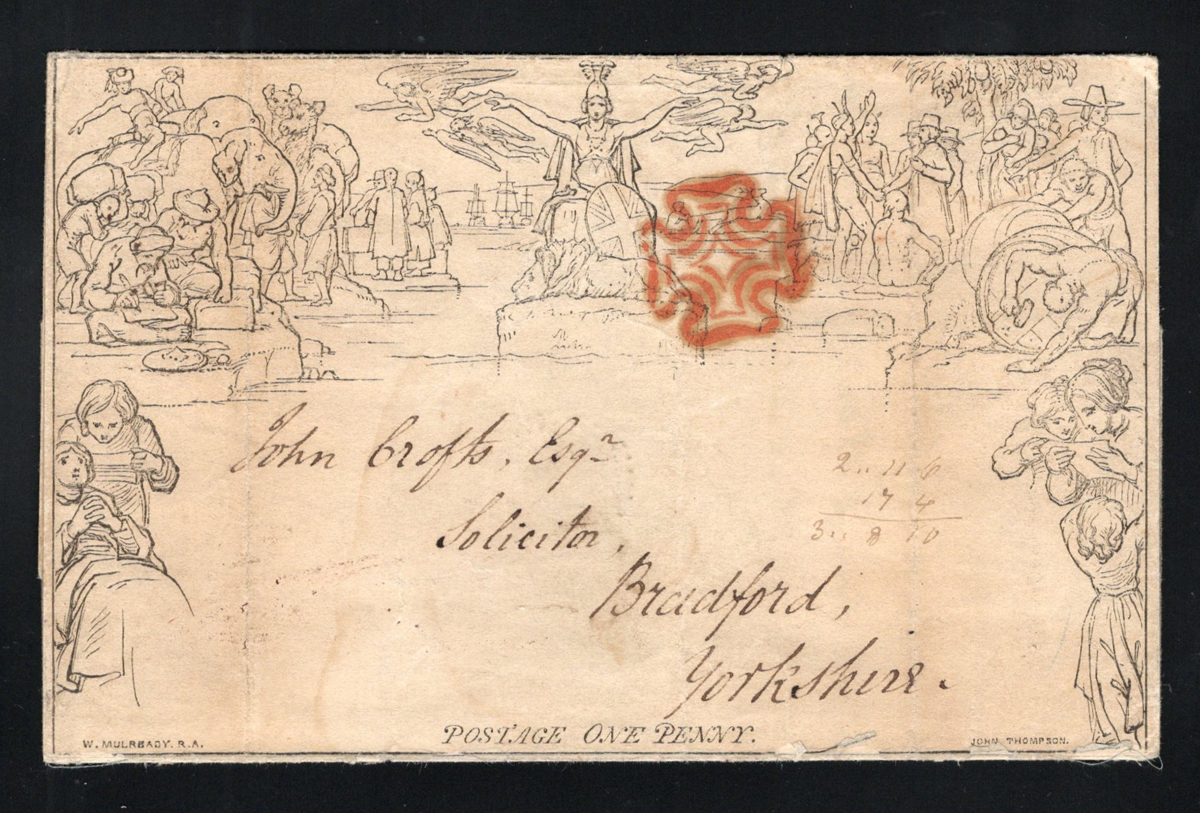 John Crofts, Esqr
Solicitor,
Bradford,
Yorkshire.
2 11 6
17 4
3 8 10
POSTAGE ONE PENNY.
W. MULREADY. R.A.
JOHN THOMPSON.